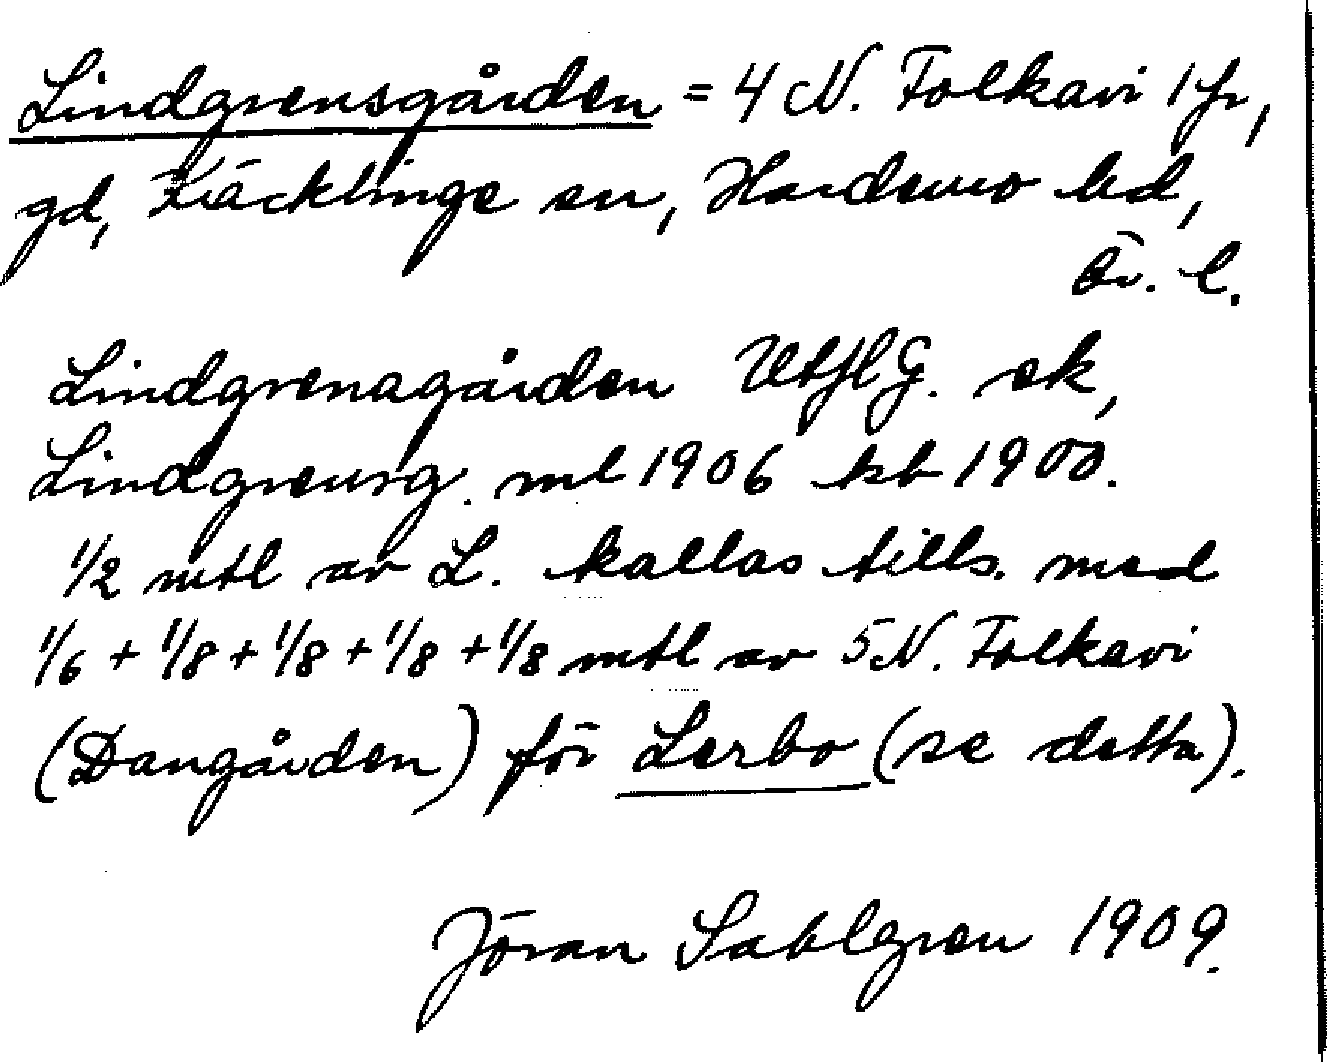 Lindgrensgården = 4 N. Folkavi 1 fr,
gd, Kräcklinge sn, Hardemo hd,
Ör. l.
Lindgrensgården UtjHG. ek,
Lindgrensg. ml 1906 kb 1900.
1/2 mtl av L. kallas tills. med
1/6 + 1/8 + 1/8 + 1/8 + 1/8 mtl av 5 N. Folkavi
(Dangården) för Lerbo (se detta).
Jöran Sahlgren 1909.